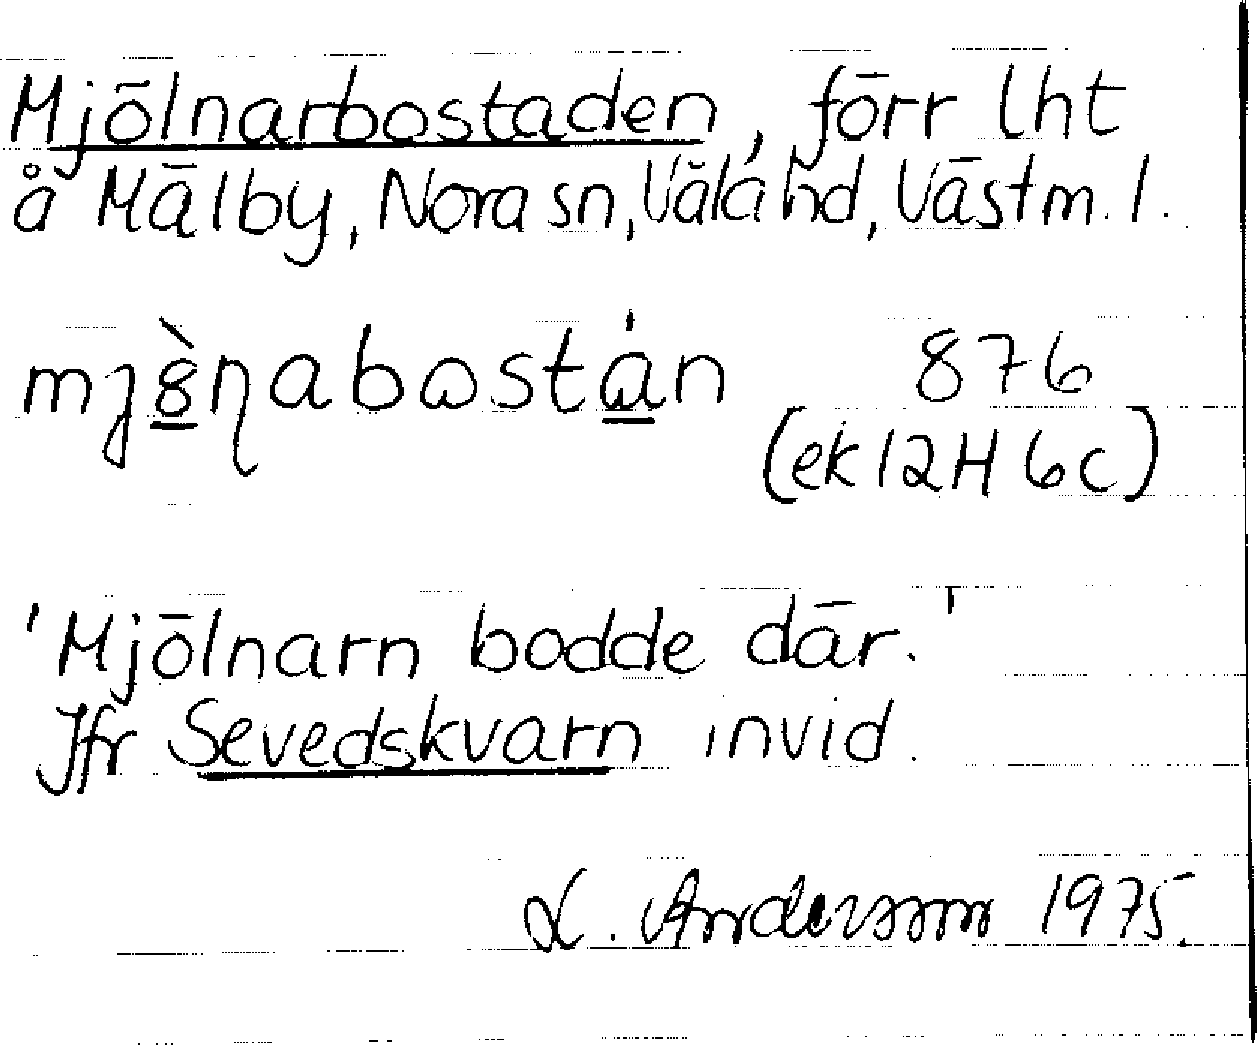 Mjölnarbostaden, förr lht
å Mälby, Nora sn, Våla hd, Västm. l.
876
(ek 12H 6c)
'Mjölnarn bodde där.'
Jfr Sevedskvarn invid.
L. Andersson 1975.